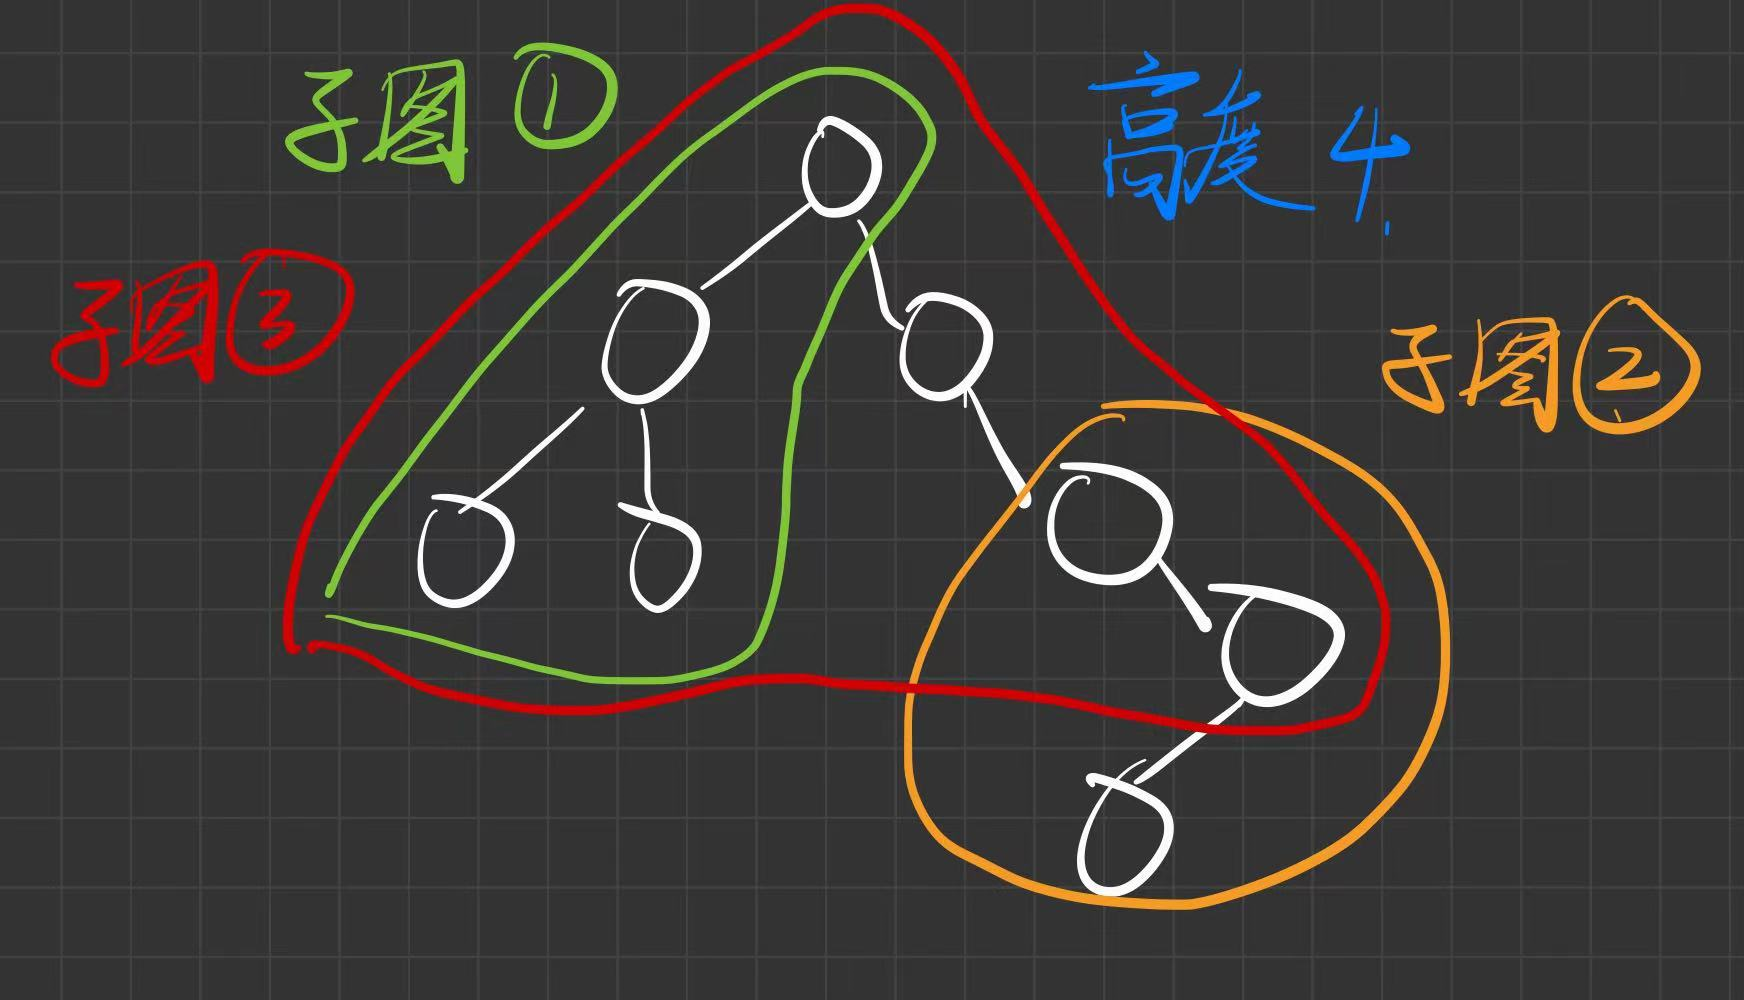 子图①
高度 4.
子图③
子图②